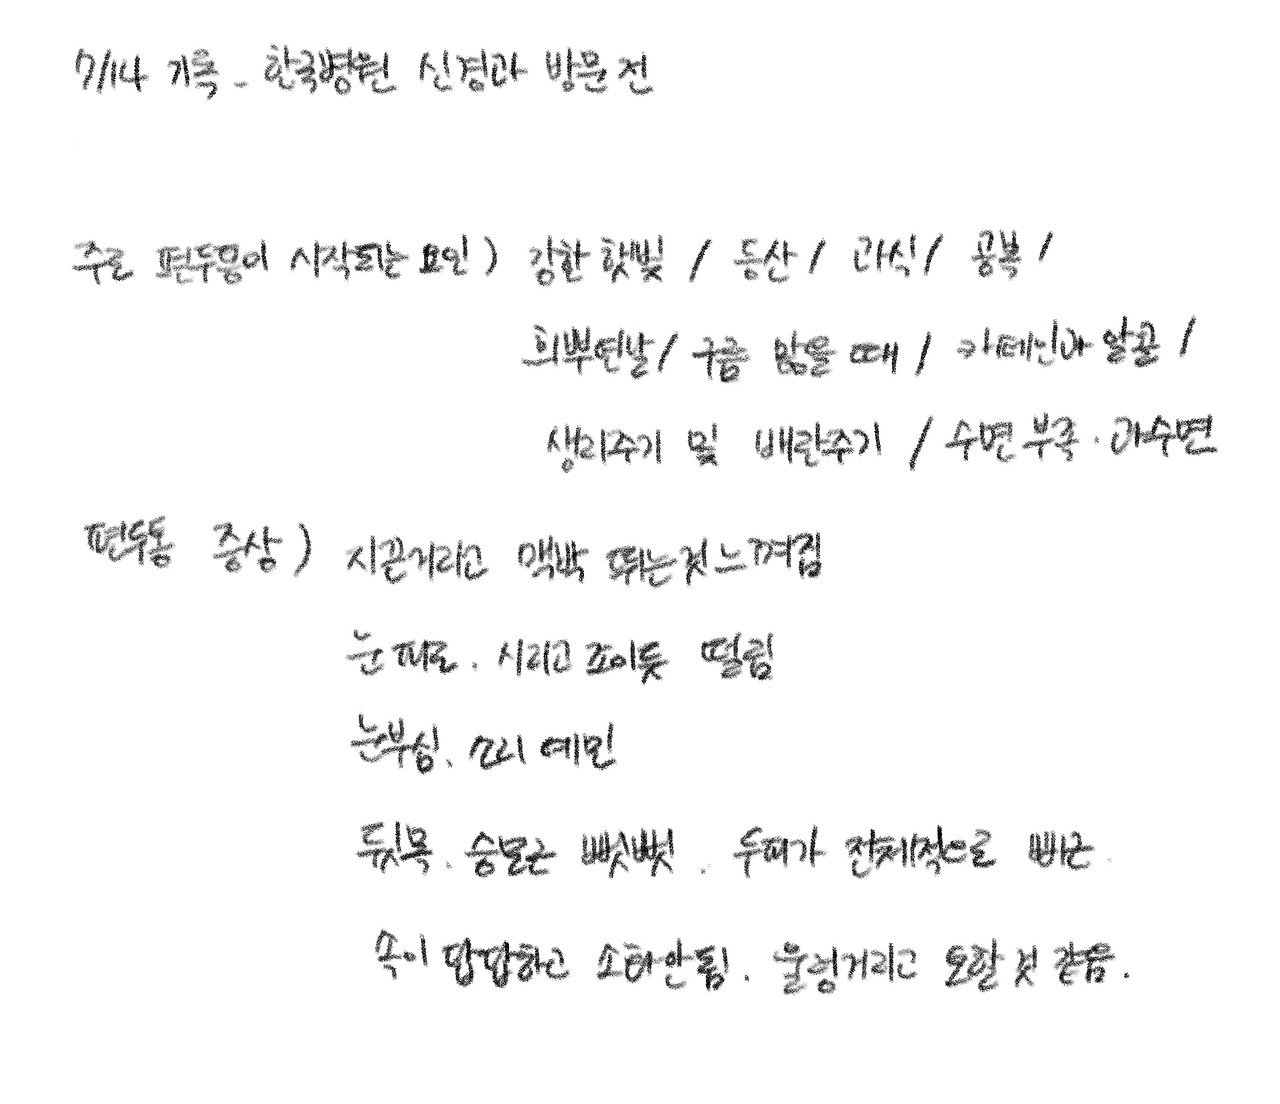 7/14 기록 - 한국병원 신경과 방문 전
주로 편두통이 시작되는 요인) 강한 햇빛 / 등산 / 과식 / 공복 /
희뿌연날 / 구름 많을 때 / 카페인과 알콜 /
생리주기 및 배란주기 / 수면 부족 · 과수면
편두통 증상) 지끈거리고 맥박 뛰는것 느껴짐
눈 피로. 시리고 조이듯 떨림
눈부심. 소리 예민
뒷목. 승모근 뻣뻣. 두피가 전체적으로 뻐근
속이 답답하고 소화안됨. 울렁거리고 토할것 같음.